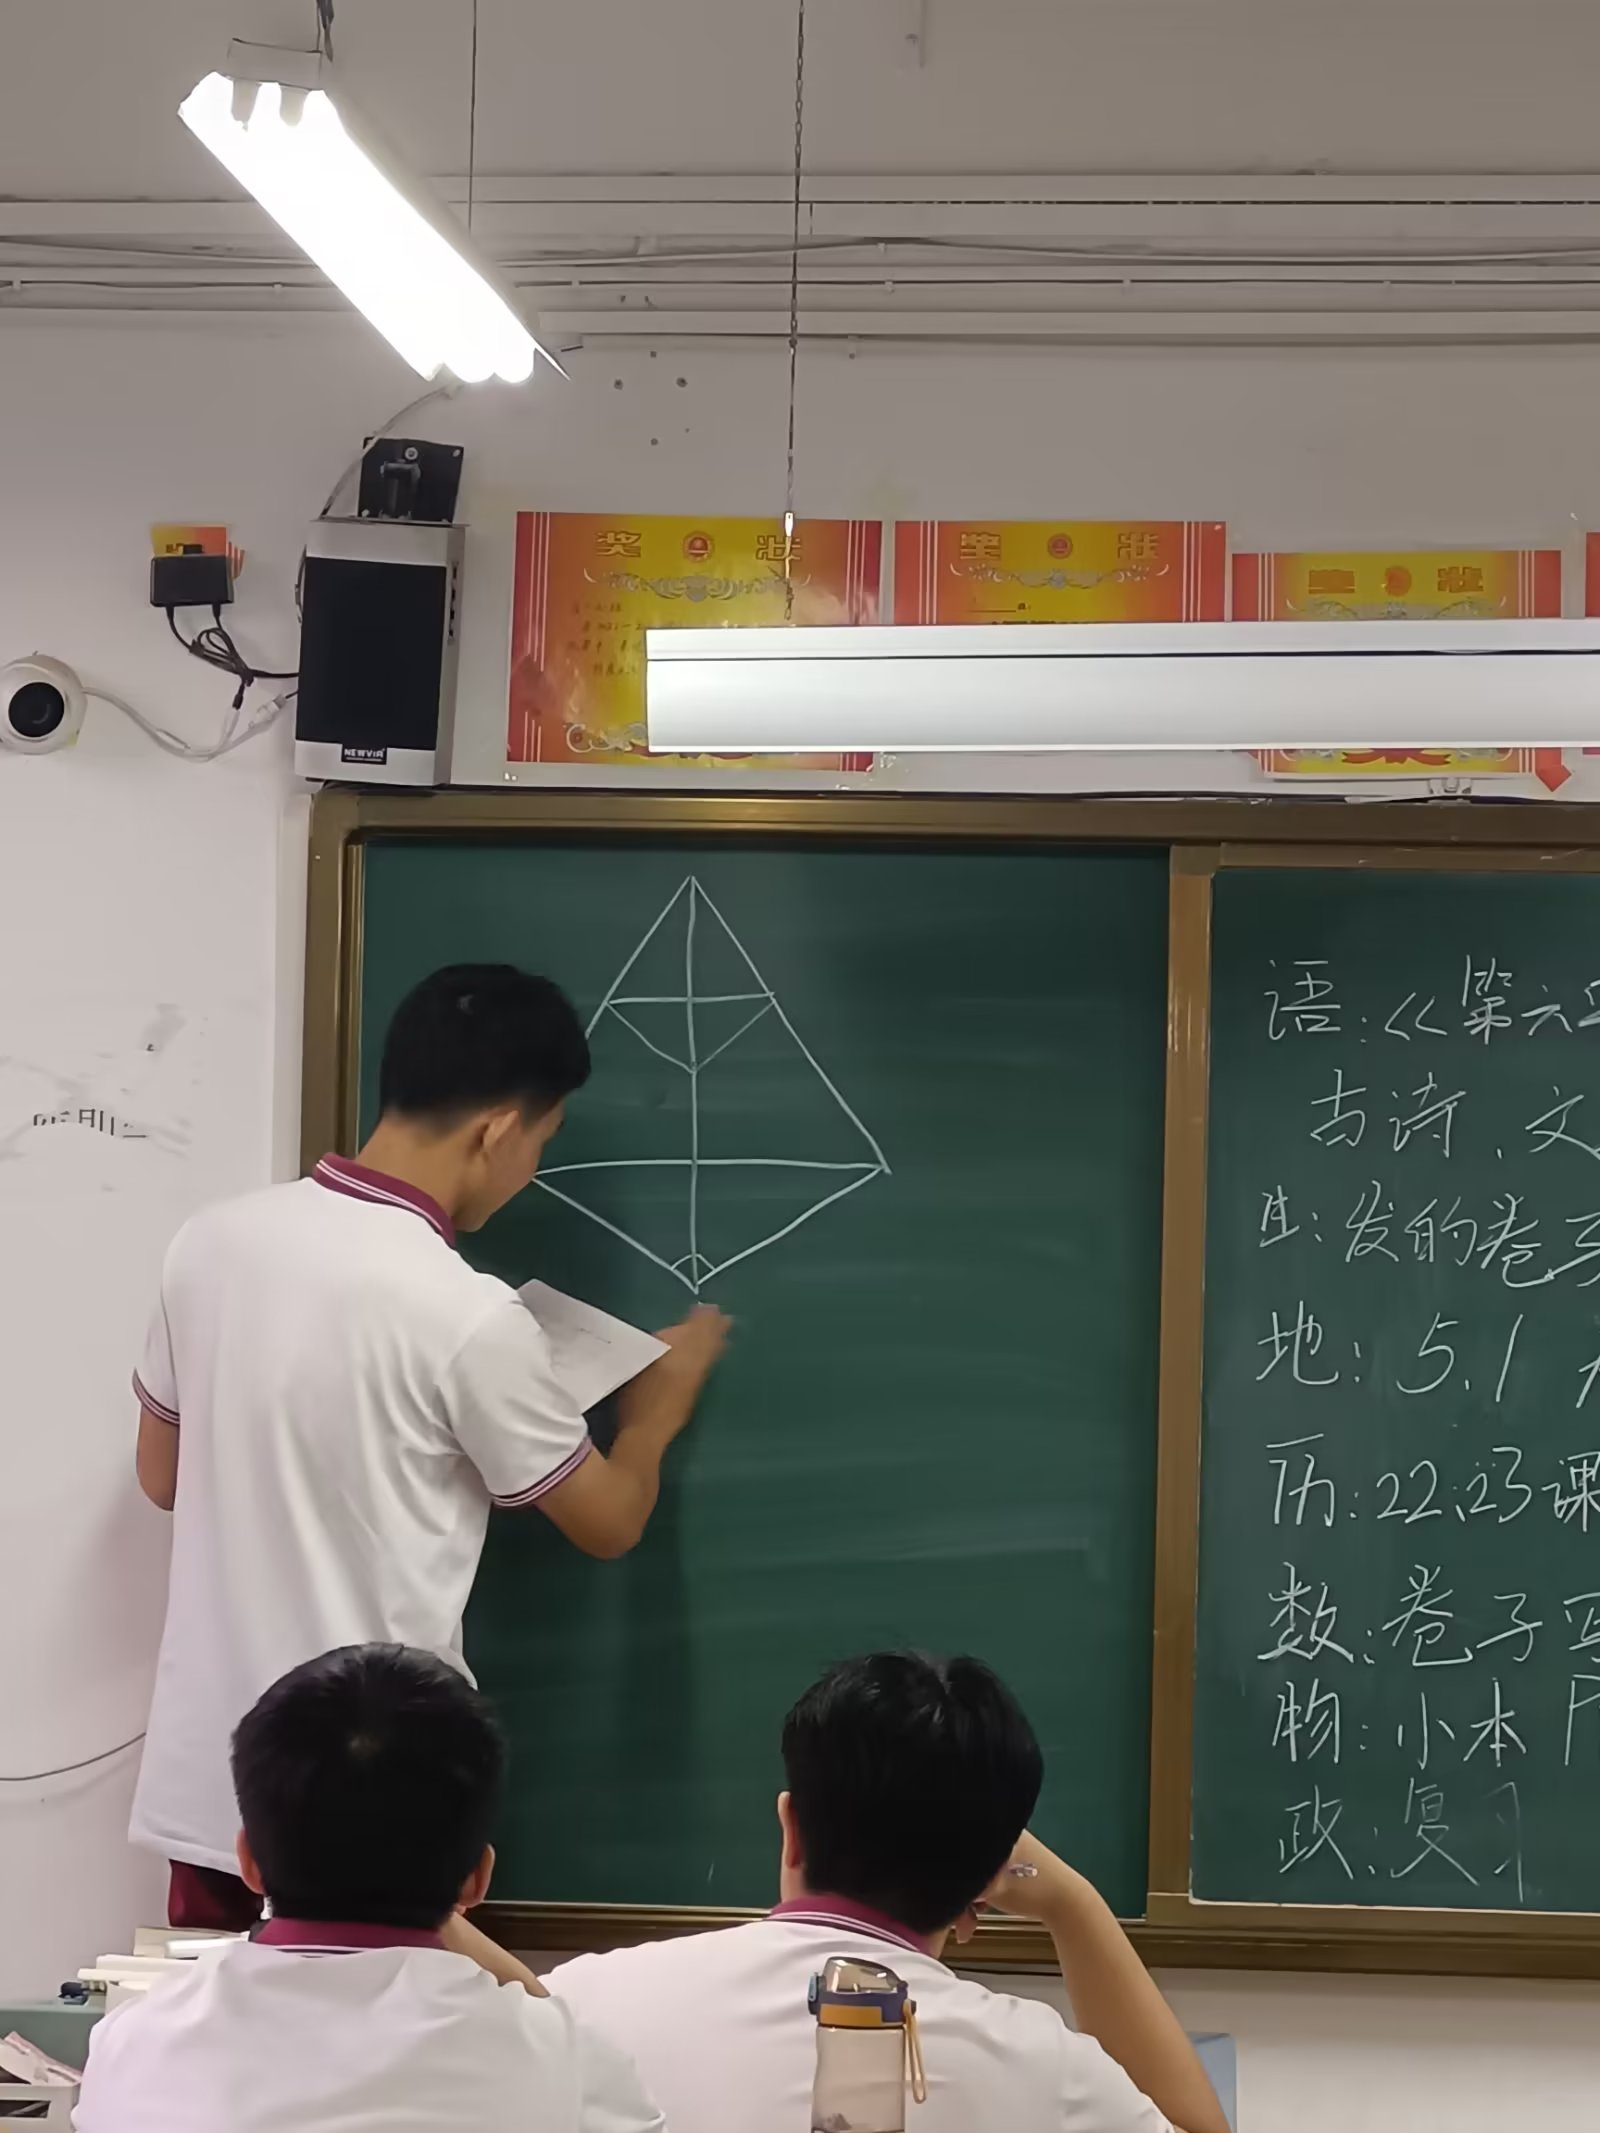 奖 状
奖 状
奖 状
NEWVIA
语:《第六
古诗、文
生:发的卷子
地:5.1
历:22.23课
数:卷子写
物:小本P
政:复习